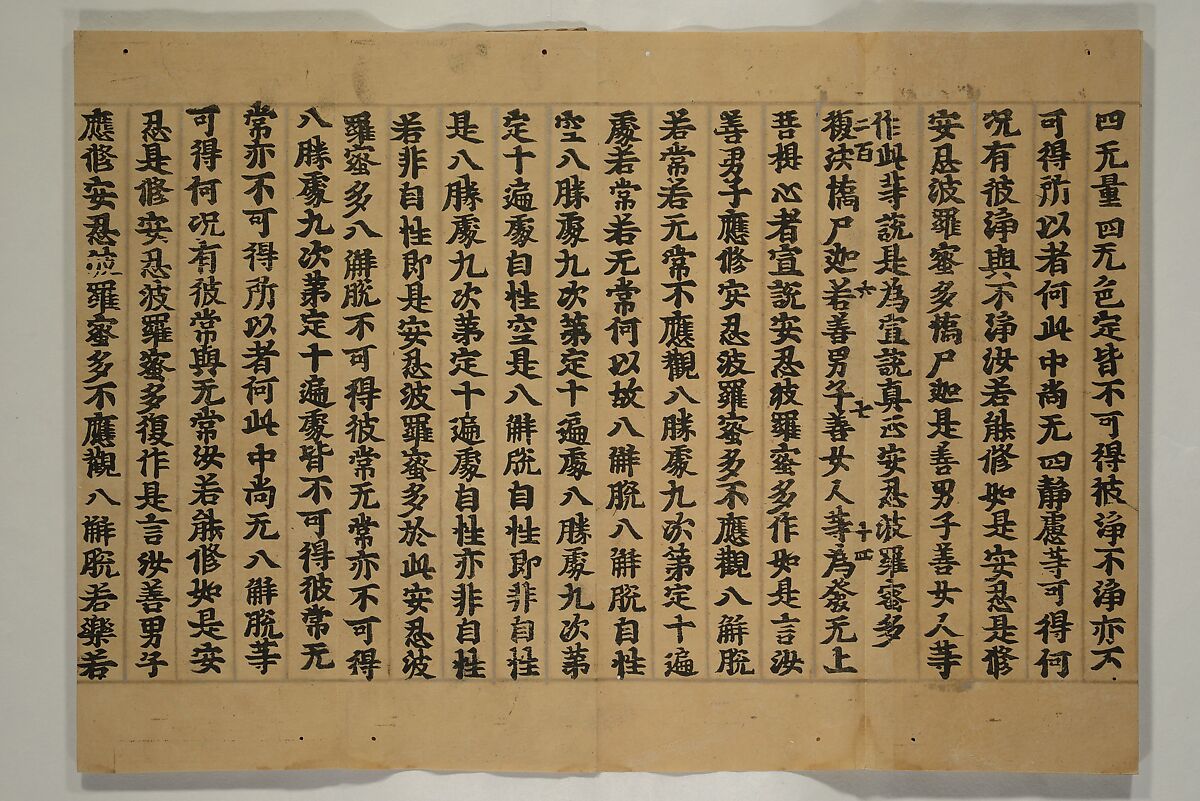 四无量四无色定皆不可得彼淨不淨亦不
可得所以者何此中尚无四靜慮等可得何
況有彼淨與不淨汝若能修如是安忍是修
安忍波羅蜜多憍尸迦是善男子善女人等
作此等說是為宣說真正安忍波羅蜜多
二百 六 七 十四
復次憍尸迦若善男子善女人等為發无上
菩提心者宣說安忍波羅蜜多作如是言汝
善男子應修安忍波羅蜜多不應觀八解脫
若常若无常不應觀八勝處九次第定十遍
處若常若无常何以故八解脫八解脫自性
空八勝處九次第定十遍處八勝處九次第
定十遍處自性空是八解脫自性即非自性
是八勝處九次第定十遍處自性亦非自性
若非自性即是安忍波羅蜜多於此安忍波
羅蜜多八解脫不可得彼常无常亦不可得
八勝處九次第定十遍處皆不可得彼常无
常亦不可得所以者何此中尚无八解脫等
可得何況有彼常與无常汝若能修如是安
忍是修安忍波羅蜜多復作是言汝善男子
應修安忍波羅蜜多不應觀八解脫若樂若